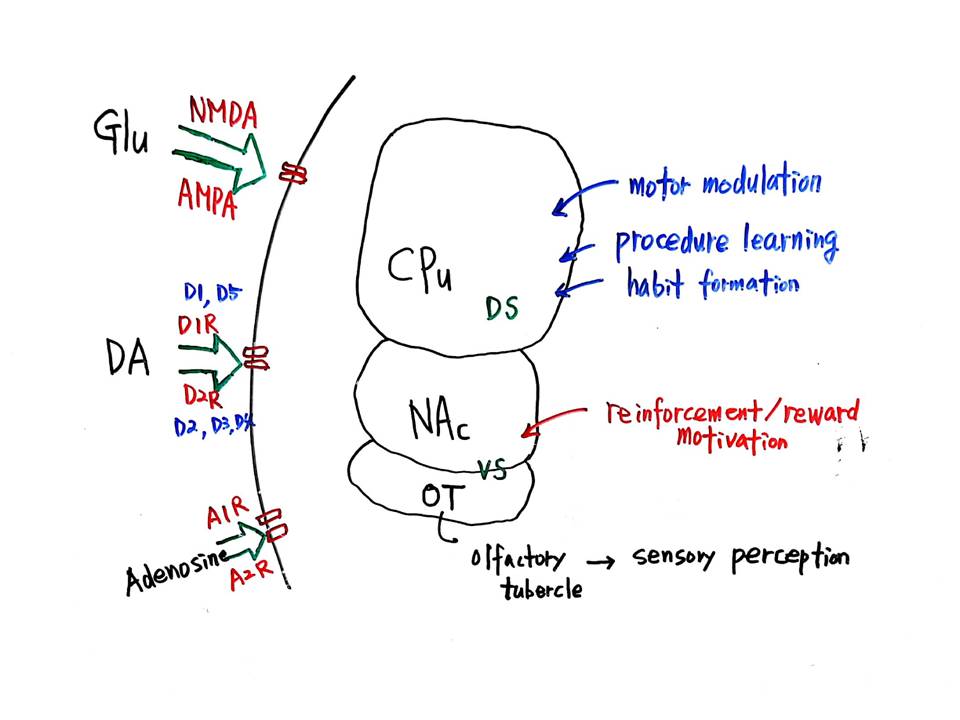 Glu
NMDA
AMPA
DA
D1, D5
D1R
D2R
D2, D3, D4
Adenosine
A1R
A2R
CPu
DS
NAc
VS
OT
motor modulation
procedure learning
habit formation
reinforcement/reward
motivation
olfactory → sensory perception
tubercle